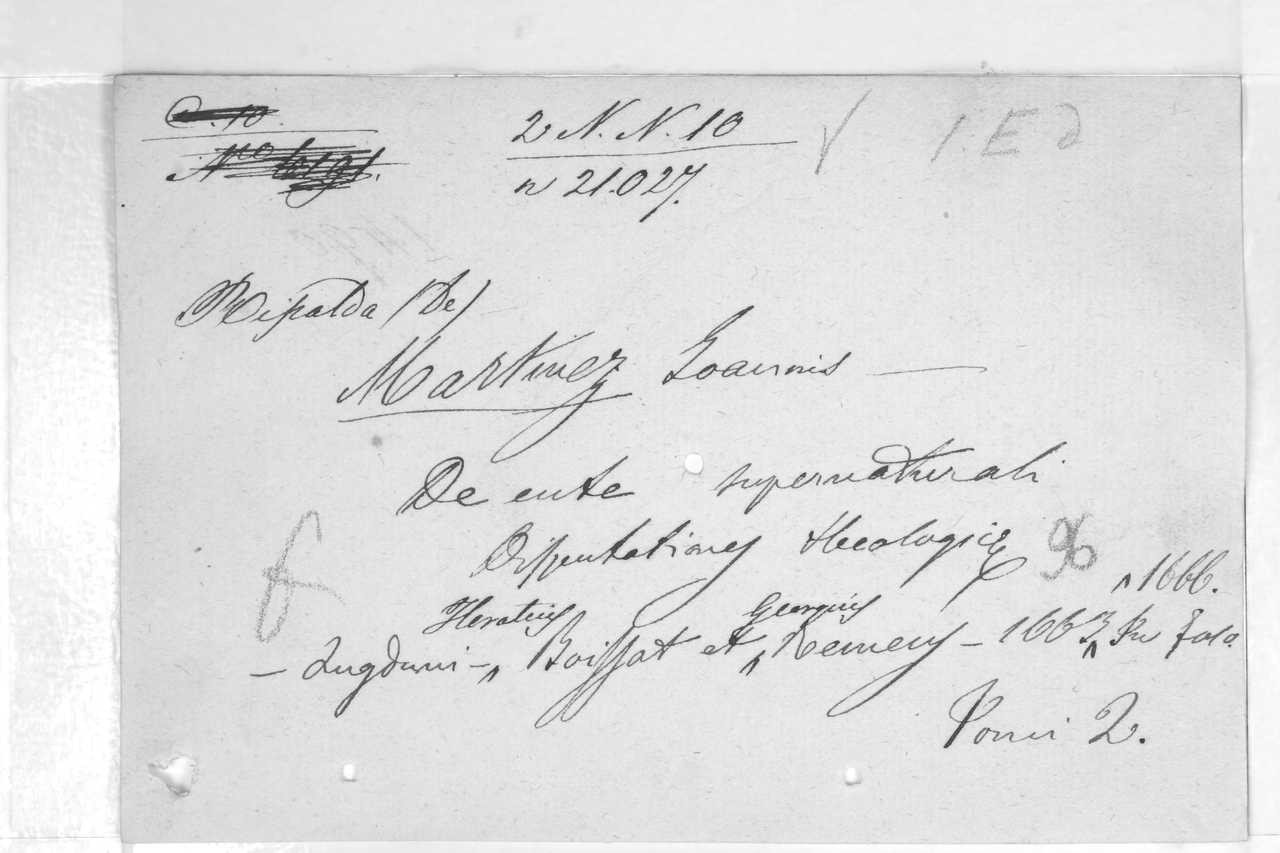 2 N. N. 10
n 21.027.
1. E
Ripalda (De)
Martinez Joannis —
De ente supernaturali
Disputationes theologicæ
96
^ 1666.
Horatius Georgius
— Lugduni — ^ Boissat et ^ Remeus — 1663 ^ In folo
Tomi 2.